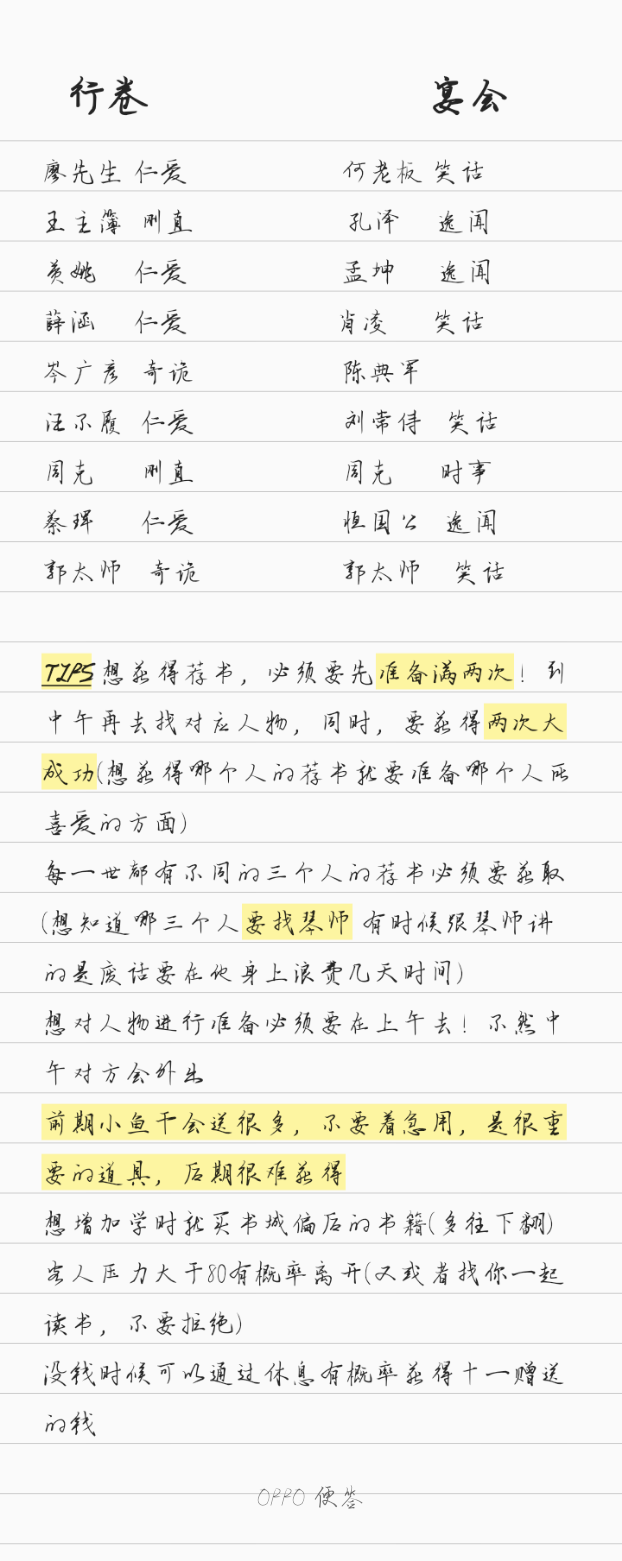 行卷 宴会
廖先生 仁爱 何老板 笑话
王主簿 刚直 孔泽 逸闻
黄姚 仁爱 孟坤 逸闻
薛涵 仁爱 肖凌 笑话
岑广彦 奇诡 陈典军
汪不履 仁爱 刘常侍 笑话
周克 刚直 周克 时事
蔡珲 仁爱 恒国公 逸闻
郭太师 奇诡 郭太师 笑话
TIPS想获得荐书，必须要先准备满两次！到
中午再去找对应人物，同时，要获得两次大
成功(想获得哪个人的荐书就要准备哪个人所
喜爱的方面)
每一世都有不同的三个人的荐书必须要获取
(想知道哪三个人要找琴师 有时候跟琴师讲
的是废话要在他身上浪费几天时间)
想对人物进行准备必须要在上午去！不然中
午对方会外出
前期小鱼干会送很多，不要着急用，是很重
要的道具，后期很难获得
想增加学时就买书城偏后的书籍(多往下翻)
客人压力大于80有概率离开(又或者找你一起
读书，不要拒绝)
没钱时候可以通过休息有概率获得十一赠送
的钱
OPPO 便签